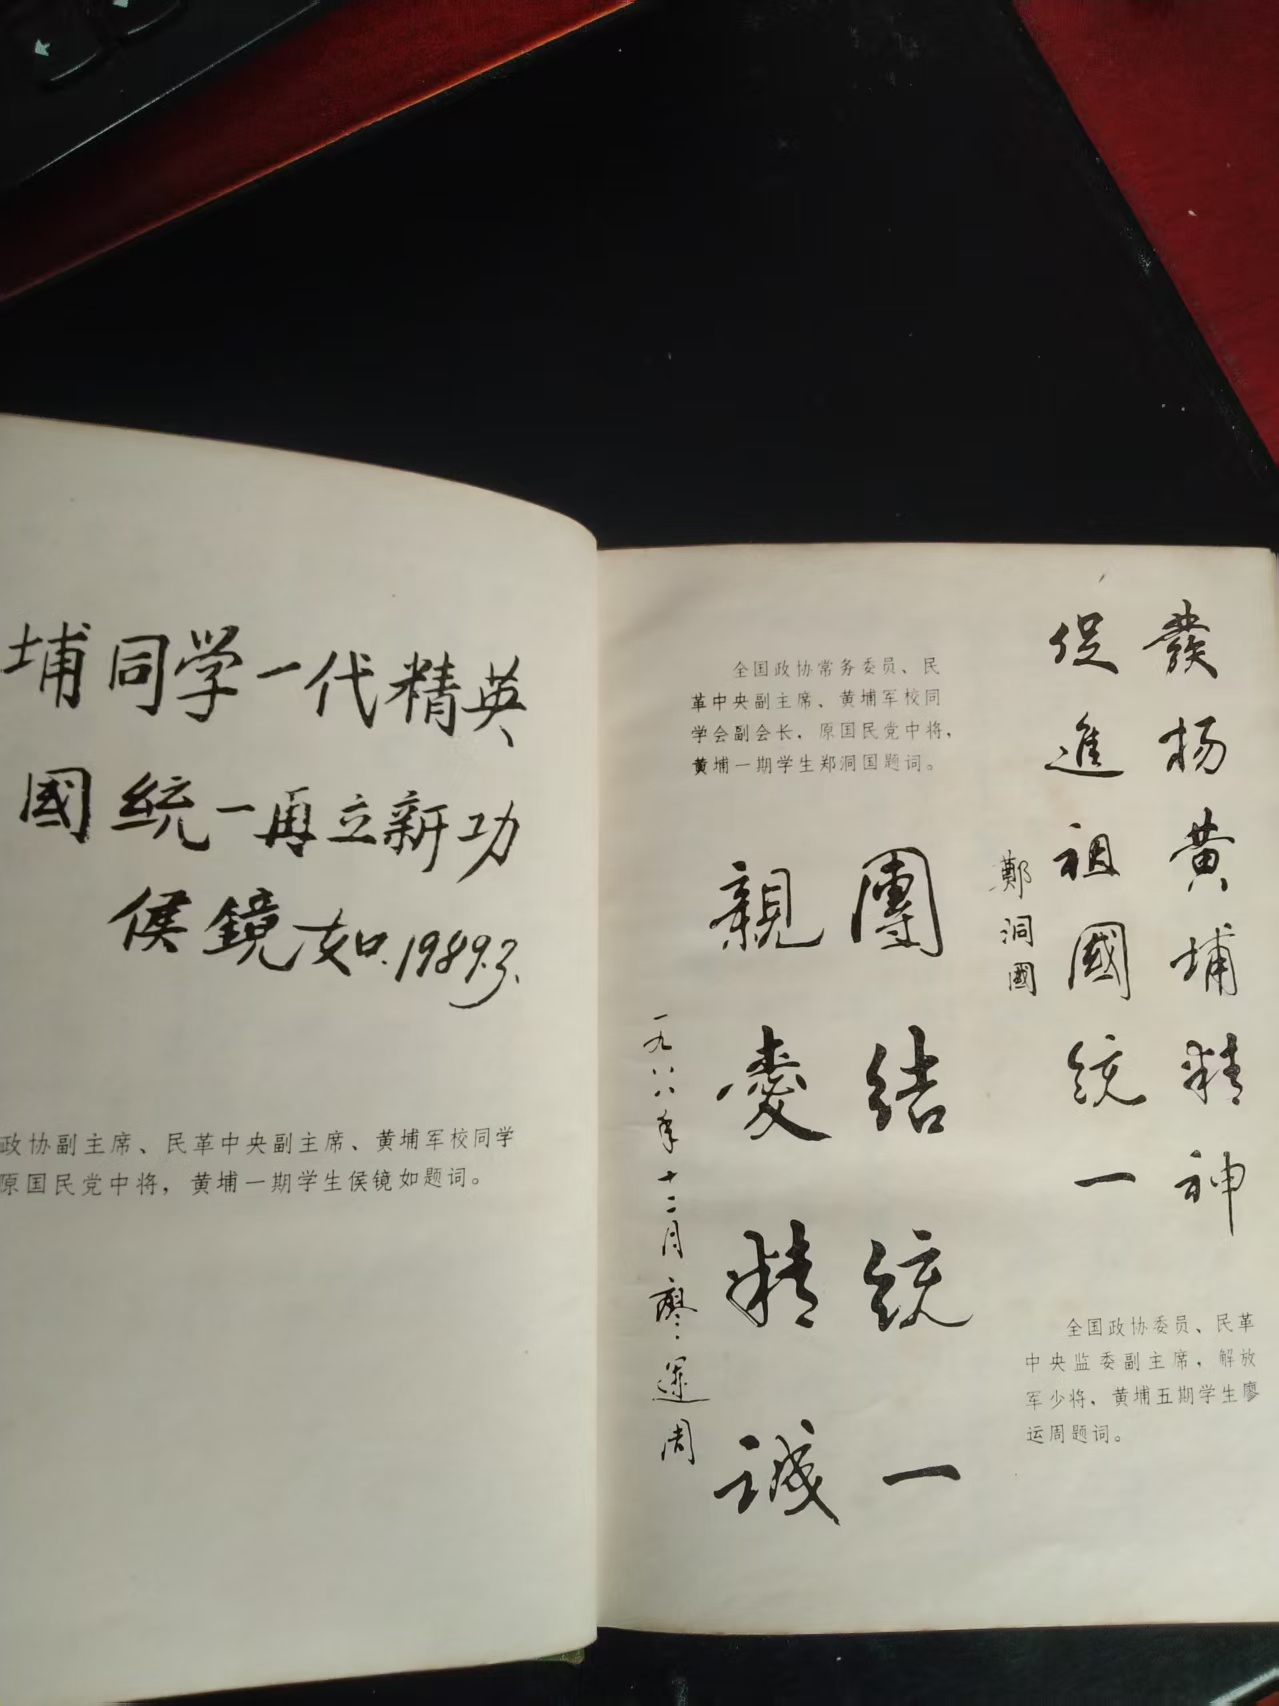 埔同学一代精英
國統一再立新功
侯鏡如.1989.3.
政协副主席、民革中央副主席、黄埔军校同学
原国民党中将，黄埔一期学生侯镜如题词。
發扬黄埔精神
促進祖國統一
鄭洞國
全国政协常务委员、民
革中央副主席、黄埔军校同
学会副会长，原国民党中将，
黄埔一期学生郑洞国题词。
團结統一
親愛精誠
一九八八年十二月廖運周
全国政协委员、民革
中央监委副主席，解放
军少将，黄埔五期学生廖
运周题词。